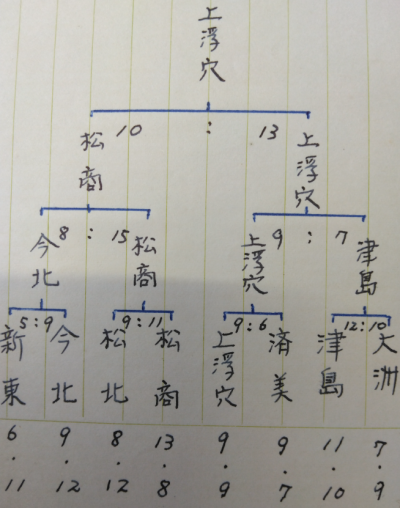 上浮穴
10 : 13
松商 上浮穴
8 : 15 9 : 7
今北 松商 上浮穴 津島
5:9 9:11 9:6 12:10
新東 今北 松北 松商 上浮穴 済美 津島 大洲
6 9 8 13 9 9 11 7
・ ・ ・ ・ ・ ・ ・ ・
11 12 12 8 9 7 10 9